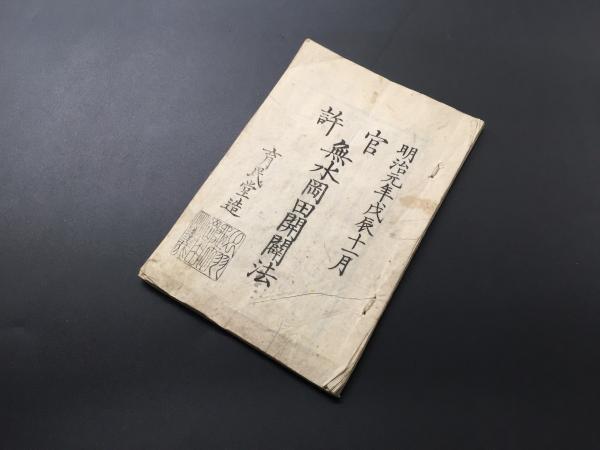 明治元年戊辰十一月
官
許
無水岡田開闢法
育民堂造